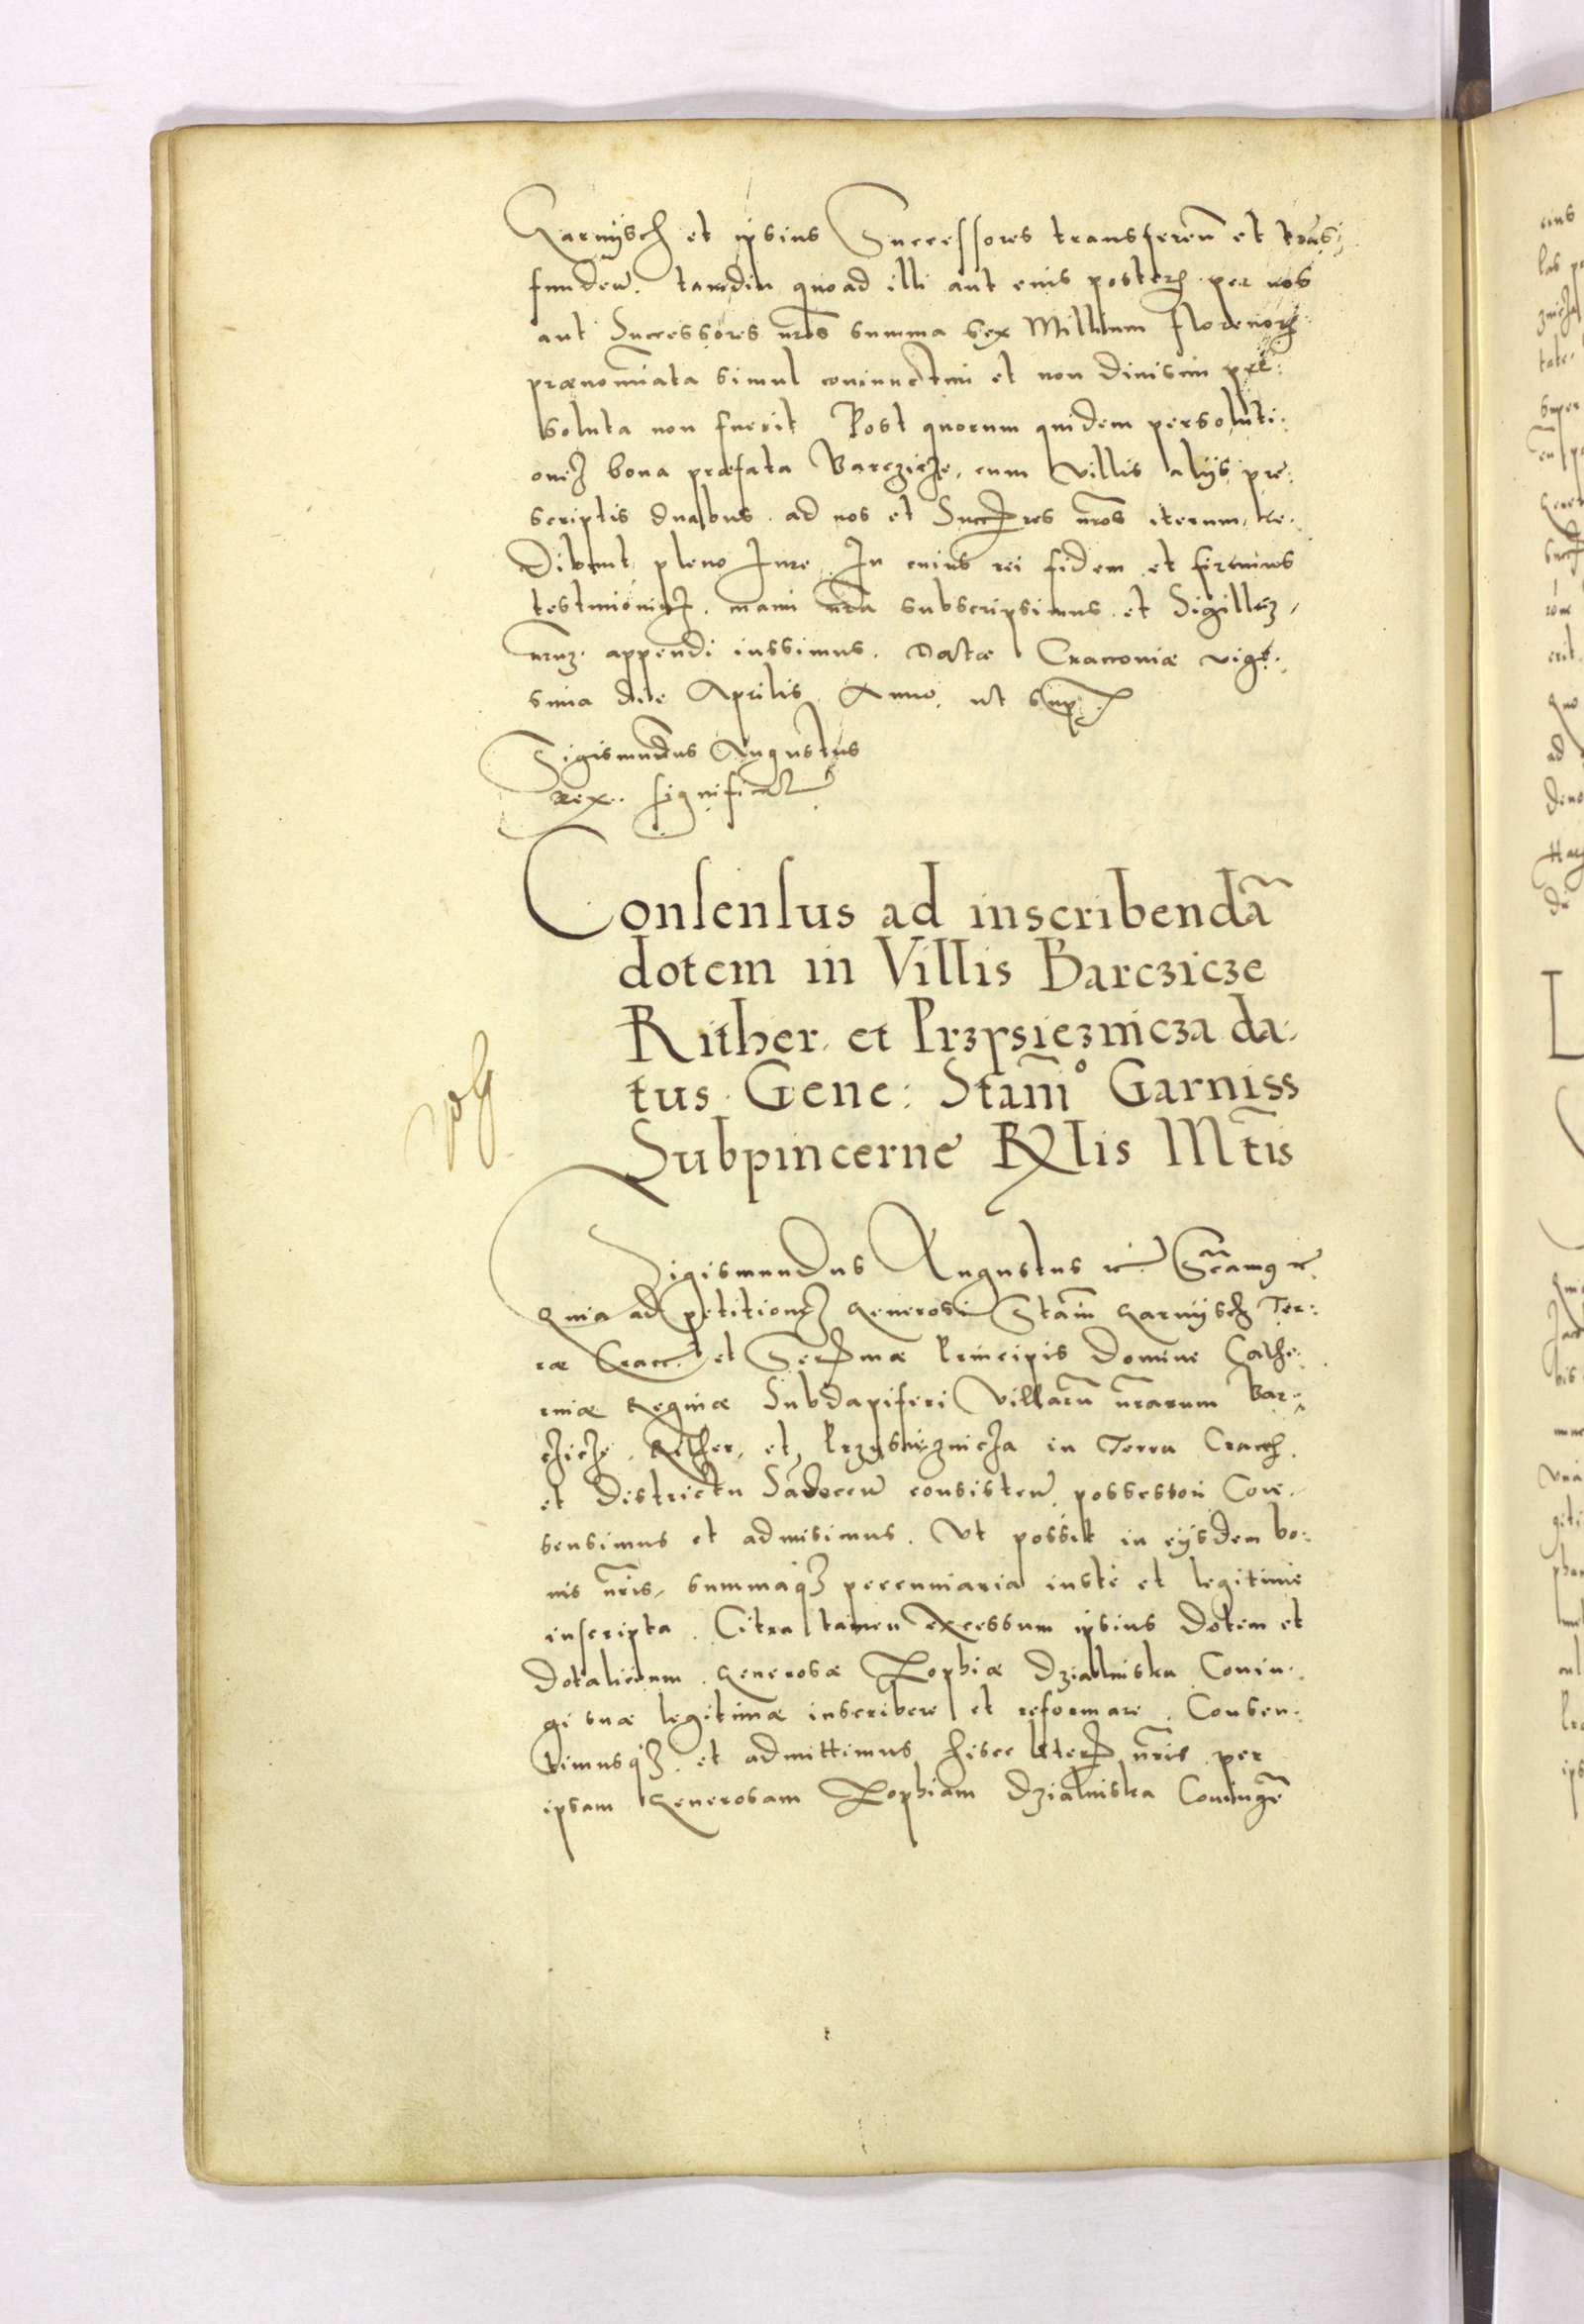 Garnÿsch et ipsius Successores transferen̄ et trās,
funden̄. tamdiu quoad illi aut eius posterz per nos
aut Successores nr̄os summa sex Millium florenorz
prænomīata simul coniunctim et non divisim per:
soluta non fuerit Post quorum quidem persoluti:
onez bona præfata Barczicze, cum villis alÿs pre:
scriptis duabus. ad nos et Succres nr̄os iterum, re:
dibunt pleno Iure. In cuius rei fidem et firmius
testimōniuz. manu nr̄a subscripsimus. et Sigilluz,
nr̄uz. appendi iussimus. Datæ Cracoviæ vige:
sima die Aprilis Anno. ut sup.
Sigismundus Augustus
Rex. significat
Consensus ad inscribendā
dotem in Villis Barczicze
Rither. et Przysieznicza da:
tus. Gene: Stanīo Garniss
Subpincerne Rlis Mt̄is
Sigismundus Augustus rc Scr̄amus rc
Quia ad petitionez Generosi Stanī Garnÿsch Ter:
ræ Cracc. et Sermæ Principis Domine Cathe:
rinæ Reginæ Subdapiferi Villarū nr̄arum Bar:
czicze. Rither, et, Przysieznicza in Terra Cracch.
et Districtu Sādeceñ consisteñ possessori Con:
sensimus et admisimus. Ut possit in eÿsdem bo:
nis nr̄is, summaqz peccuniaria iuste et legitime
inscripta. Citra tamen excessum ipsius Dotem et
Dotalicium. Generosæ Zophiæ Dzialniska Coniu:
gi suæ legitimæ inscribere et reformare. Consen:
timusqz. et admittimus hisce liter nr̄is per
ipsam Generosam Zophiam Dzialniska Coniugē